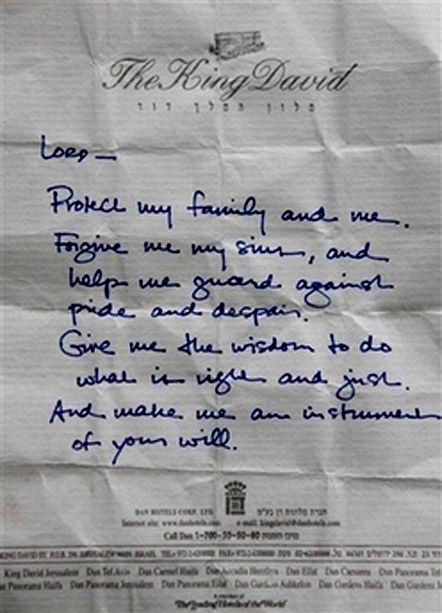 The King David
מלון המלך דוד
Lord —
Protect my family and me.
Forgive me my sins, and
help me guard against
pride and despair.
Give me the wisdom to do
what is right and just.
And make me an instrument
of your will.
DAN HOTELS CORP. LTD. חברת מלונות דן בע"מ
Internet site: www.danhotels.com e-mail: kingdavid@danhotels.com
Call Dan 1-700-55-90-80 מרכז הזמנות
KING DAVID ST. P.O.B. JERUSALEM ISRAEL
King David Jerusalem Dan Tel Aviv Dan Carmel Haifa Dan Accadia Herzliya Dan Eilat Dan Caesarea Dan Panorama Tel
Dan Panorama Haifa Dan Panorama Jerusalem Dan Panorama Eilat Dan Gardens Ashkelon Dan Gardens Haifa Dan Gardens
A member of
"The Leading Hotels of the World"